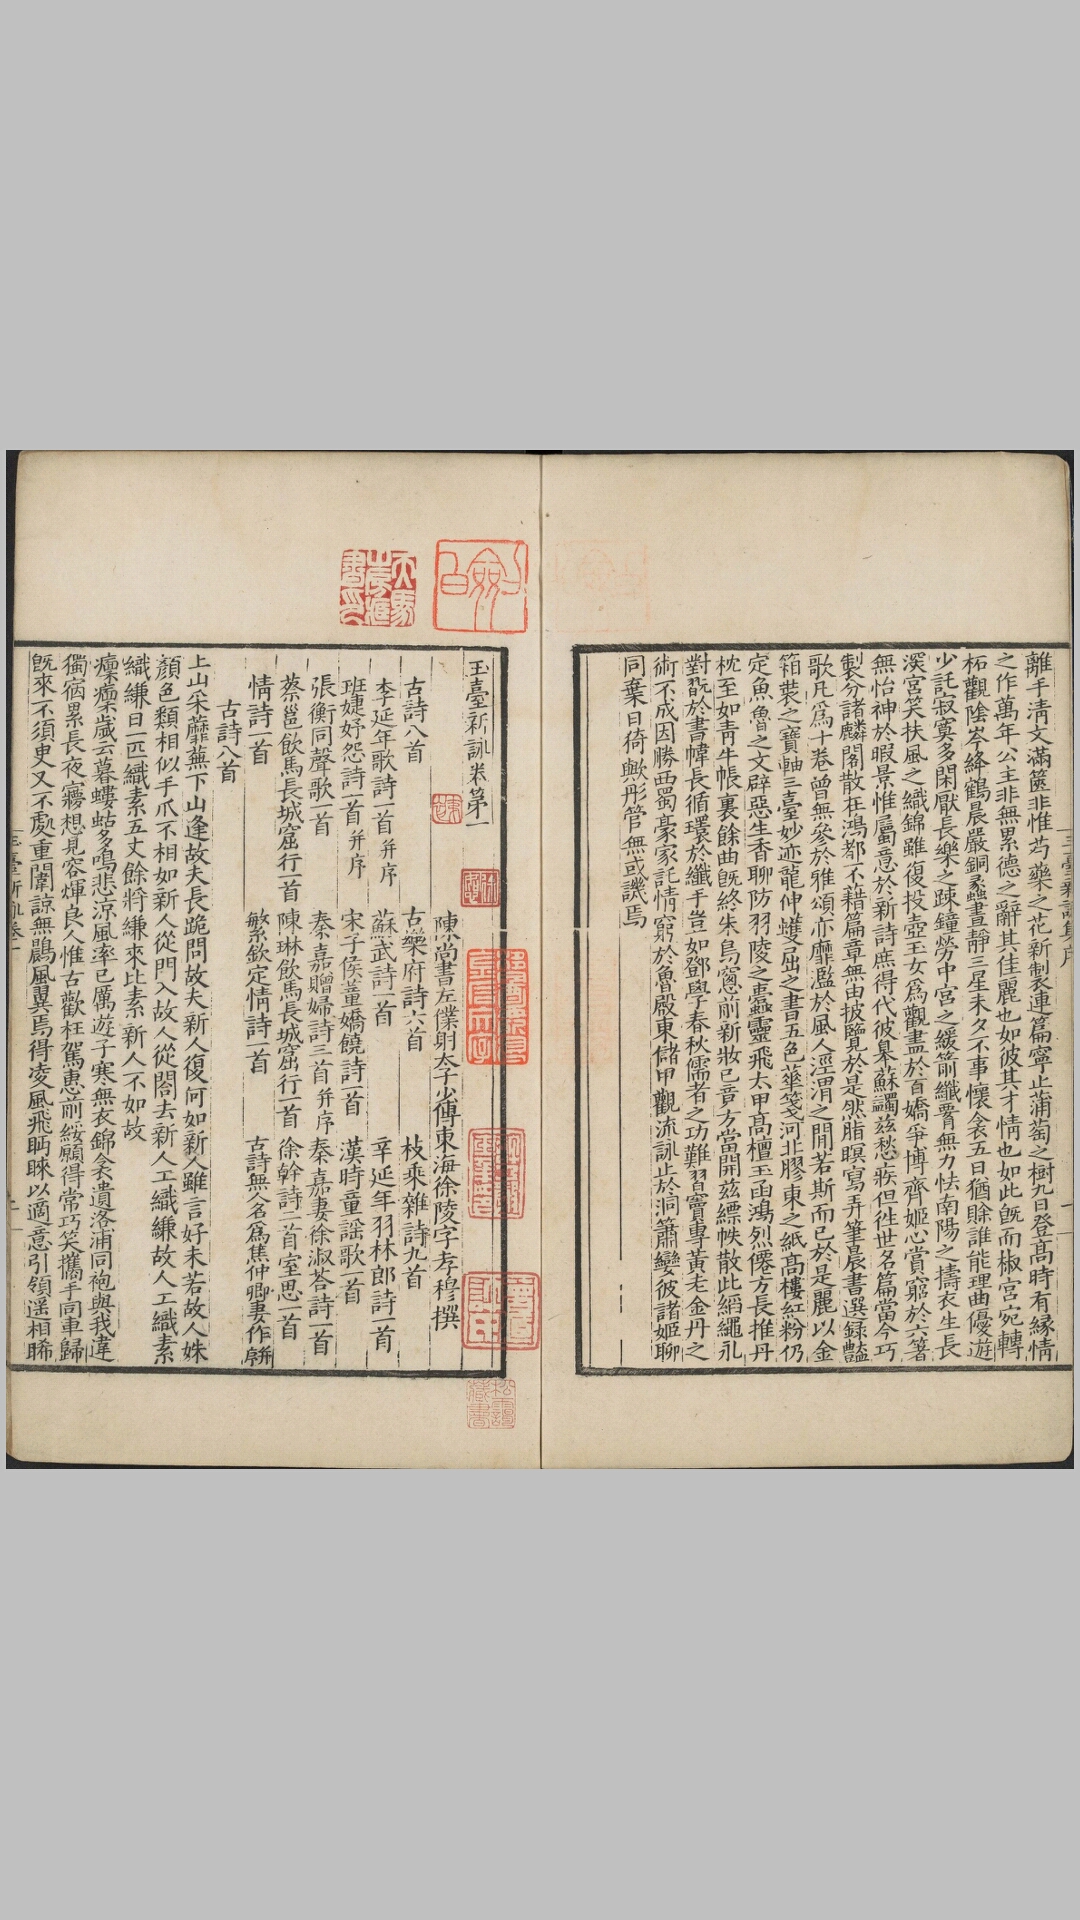 離手清文滿篋非惟芍藥之花新製連篇寧止蒲萄之樹九日登髙時有緣情
之作萬年公主非無累德之辭其佳麗也如彼其才情也如此旣而椒宮宛轉
柘觀陰岑絳鶴晨嚴銅蠡晝靜三星未夕不事懷衾五日猶賒誰能理曲優遊
少託寂寞多閑厭長樂之踈鐘勞中宮之緩箭纖腰無力怯南陽之擣衣生長
深宮笑扶風之織錦雖復投壺玉女爲觀盡於百嬌爭博齊姬心賞窮於六箸
無怡神於暇景惟屬意於新詩庶得代彼皋蘇蠲茲愁疾但徃世名篇當今巧
製分諸麟閣散在鴻都不藉篇章無由披覽於是然脂暝寫弄筆晨書選録豔
歌凡爲十卷曾無參於雅頌亦靡濫於風人涇渭之閒若斯而已於是麗以金
箱裝之寶軸三臺妙迹龍伸蠖屈之書五色華箋河北膠東之紙髙樓紅粉仍
定魚魯之文辟惡生香聊防羽陵之蠹靈飛太甲髙檀玉函鴻烈僊方長推丹
枕至如青牛帳裏餘曲旣終朱鳥窻前新妝已竟方當開茲縹帙散此縚繩永
對翫於書幃長循環於纖手豈如鄧學春秋儒者之功難習竇專黃老金丹之
術不成因勝西蜀豪家託情窮於魯殿東儲甲觀流詠止於洞簫孌彼諸姬聊
同棄日猗歟彤管無或譏焉
玉臺新詠卷第一
陳尚書左僕射太子少傅東海徐陵字孝穆撰
古詩八首 古樂府詩六首 枚乘雜詩九首
李延年歌詩一首并序 蘇武詩一首 辛延年羽林郎詩一首
班婕妤怨詩一首并序 宋子侯董嬌饒詩一首 漢時童謡歌一首
張衡同聲歌一首 秦嘉贈婦詩三首并序 秦嘉妻徐淑荅詩一首
蔡邕飲馬長城窟行一首 陳琳飲馬長城窟行一首 徐幹詩二首室思一首
情詩一首 繁欽定情詩一首 古詩無名爲焦仲卿妻作并序
古詩八首
上山采蘼蕪下山逢故夫長跪問故夫新人復何如新人雖言好未若故人姝
顏色類相似手爪不相如新人從門入故人從閤去新人工織縑故人工織素
織縑日一匹織素五丈餘將縑來比素新人不如故
凜凜歲云暮螻蛄多鳴悲涼風率已厲遊子寒無衣錦衾遺洛浦同袍與我違
獨宿累長夜夢想見容煇良人惟古歡枉駕惠前綏願得常巧笑攜手同車歸
旣來不須臾又不處重闈諒無鷐風翼焉得凌風飛眄睞以適意引領遥相睎